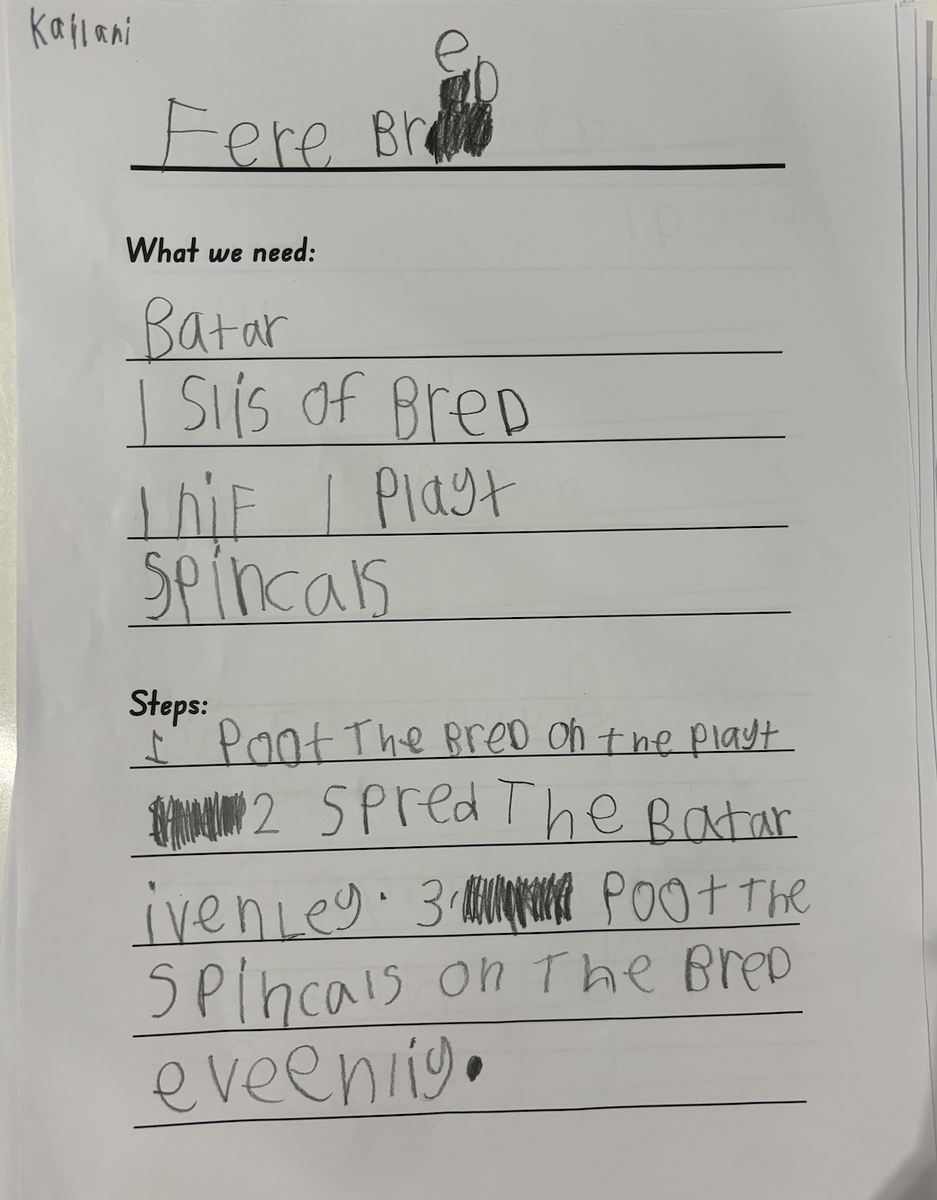 Kailani
Fere Bred
What we need:
Batar
1 Slis of Bred
1 hif 1 Playt
Spincals
Steps:
1 Poot The Bred on the playt
2 Spred The Batar
ivenley. 3. Poot The
Spincals on The Bred
eveenliy.